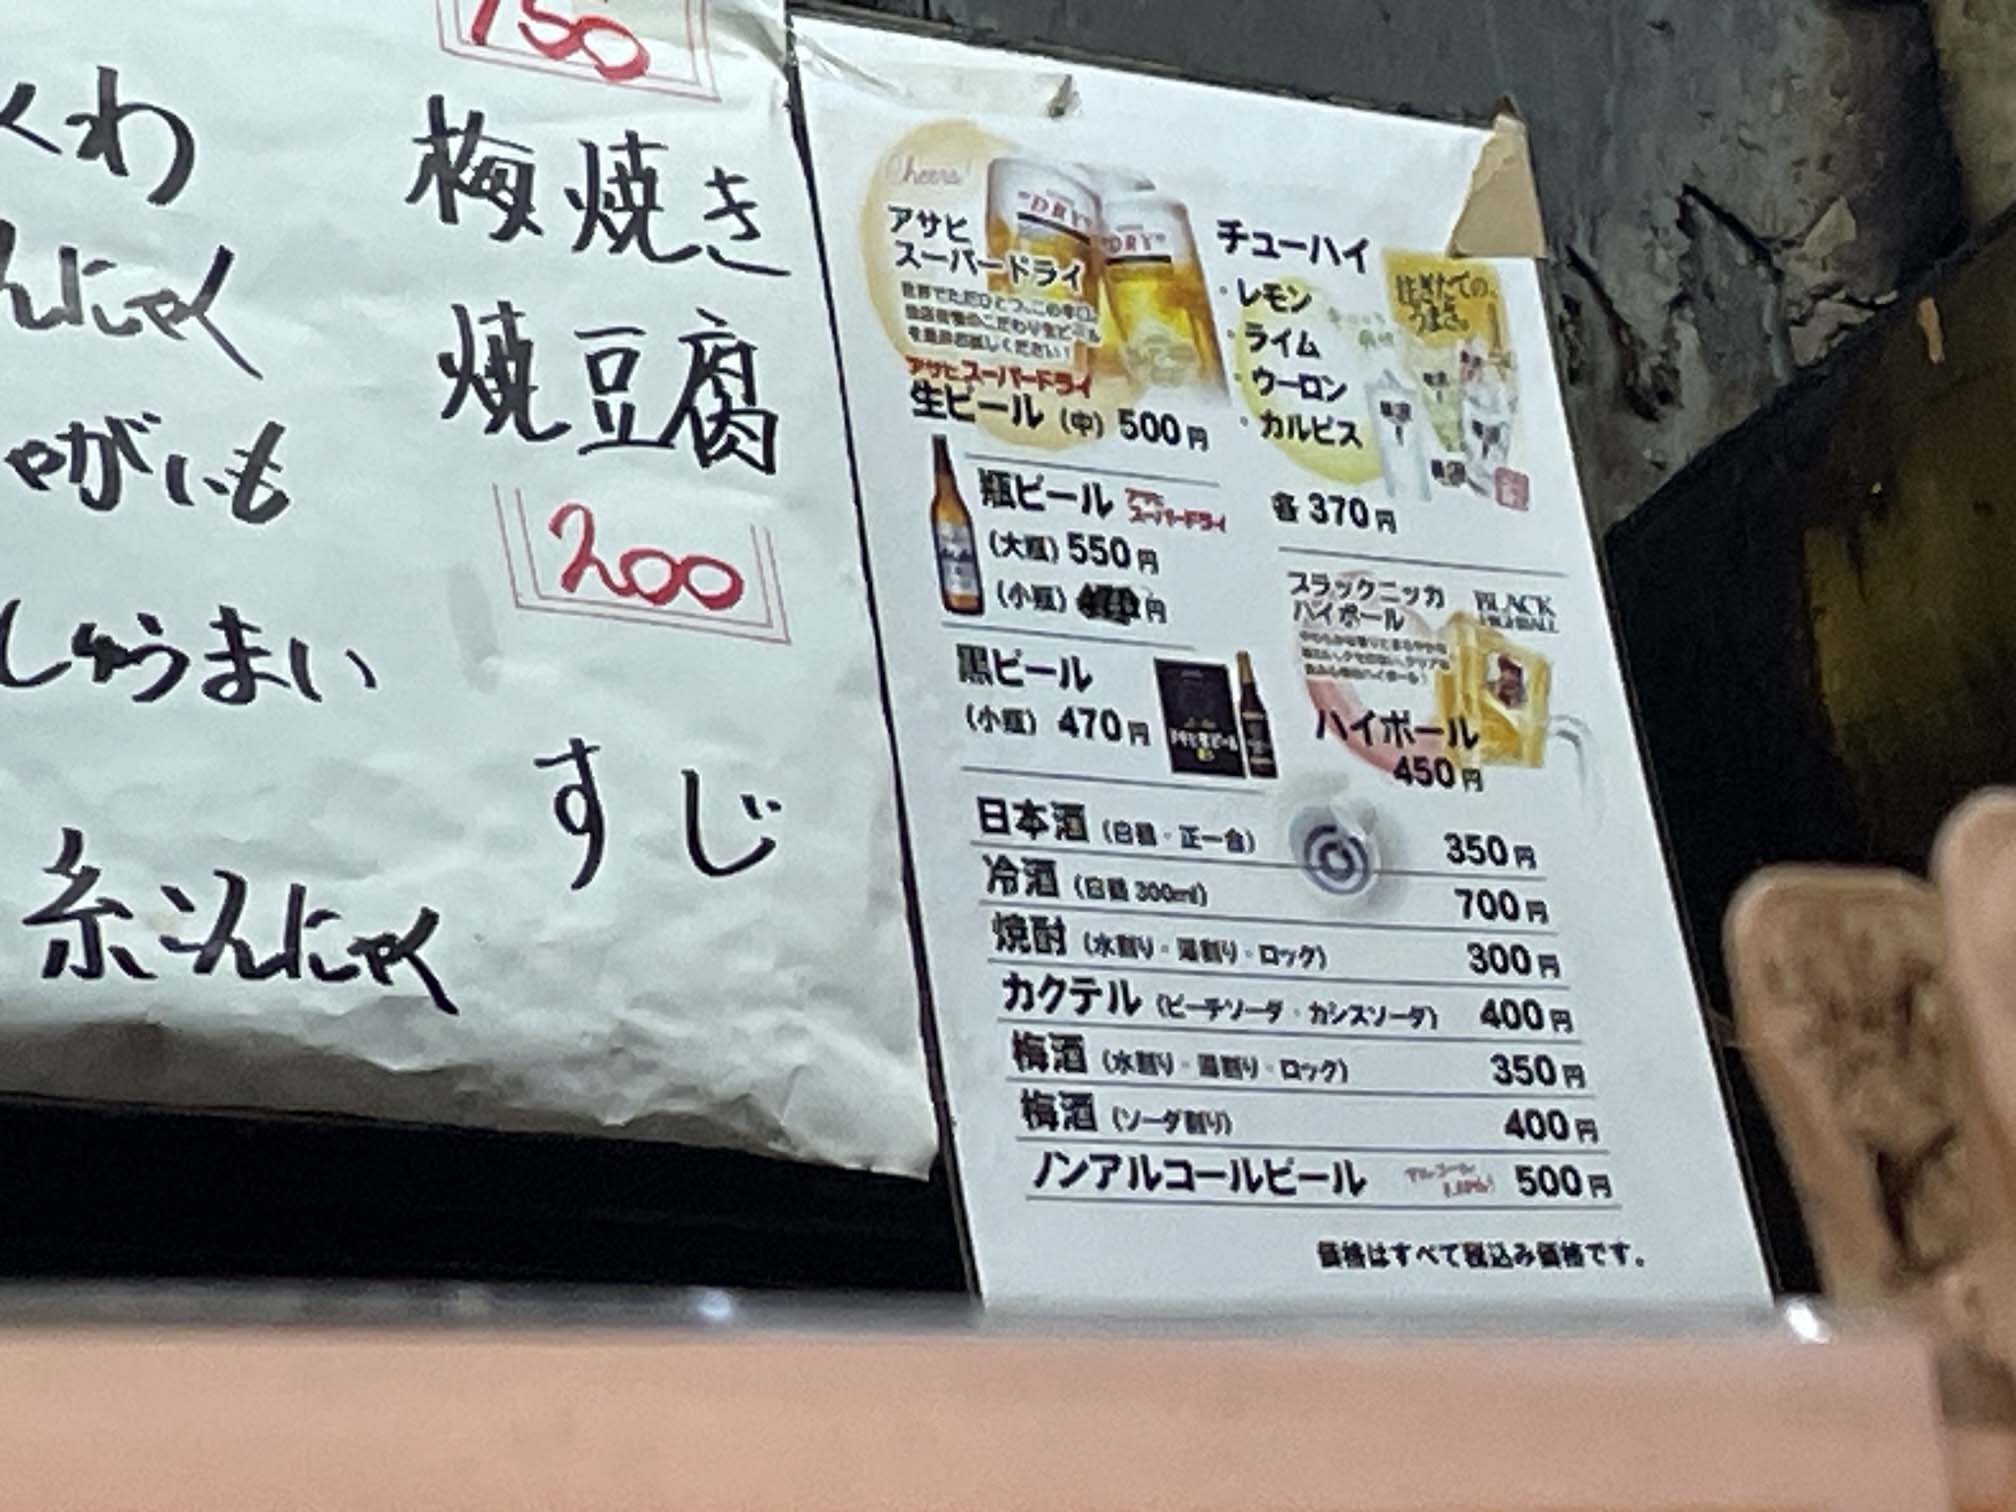 150
くわ
んにゃく
ゃがいも
しゅうまい
糸こんにゃく
梅焼き
焼豆腐
200
すじ
Cheers!
"DRY"
"DRY"
アサヒ
スーパードライ
世界でただひとつ、この辛口。
当店自慢のこだわり生ビール
を是非お試しください!
アサヒスーパードライ
生ビール (中) 500円
瓶ビール アサヒ
スーパードライ
(大瓶) 550円
(小瓶) 円
黒ビール
(小瓶) 470円
チューハイ
・レモン
・ライム
・ウーロン
・カルピス
各 370円
注ぎたての、
うまさ。
ブラックニッカ
ハイボール
BLACK
HIGHBALL
ハイボール
450円
日本酒 (白鶴・正一合) 350円
冷酒 (白鶴 300ml) 700円
焼酎 (水割り・湯割り・ロック) 300円
カクテル (ピーチソーダ・カシスソーダ) 400円
梅酒 (水割り・湯割り・ロック) 350円
梅酒 (ソーダ割り) 400円
ノンアルコールビール 500円
価格はすべて税込み価格です。